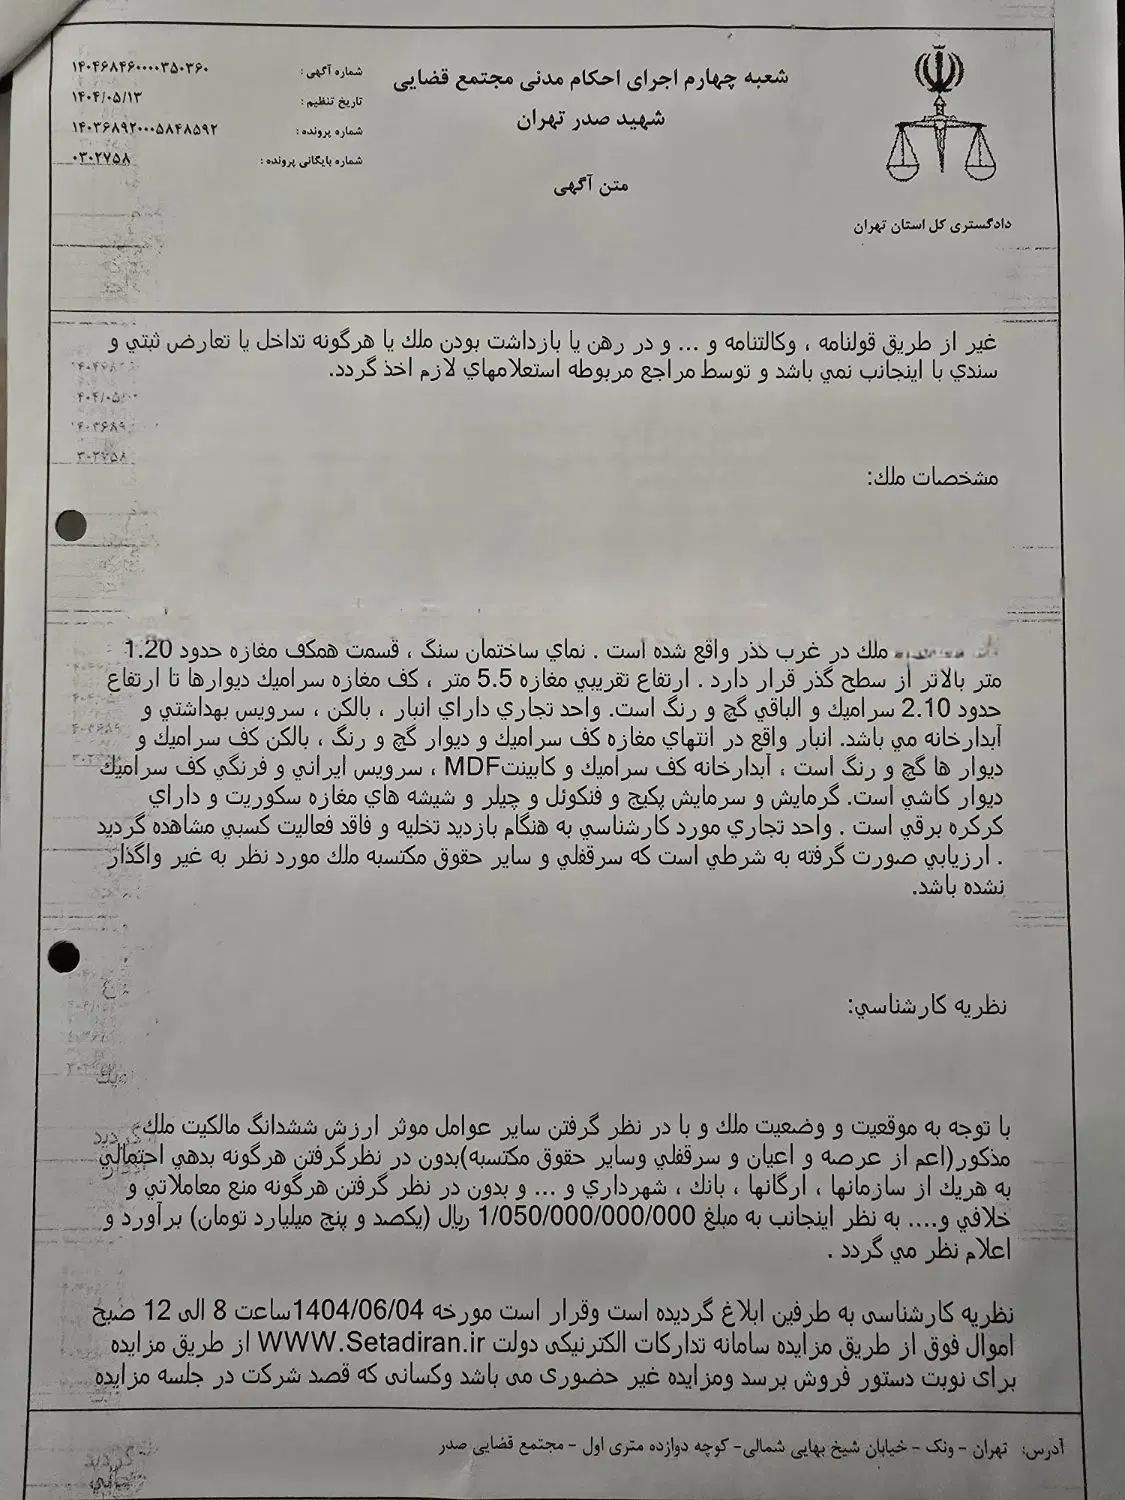 شعبه چهارم اجرای احکام مدنی مجتمع قضایی
شهید صدر تهران
متن آگهی
دادگستری کل استان تهران
شماره آگهی : ۱۴۰۴۶۸۴۶۰۰۰۰۳۵۰۳۶۰
تاریخ تنظیم : ۱۴۰۴/۰۵/۱۳
شماره پرونده : ۱۴۰۳۶۸۹۲۰۰۰۵۸۴۸۵۹۲
شماره بایگانی پرونده : ۰۳۰۲۷۵۸
غیر از طریق قولنامه ، وکالتنامه و ... و در رهن یا بازداشت بودن ملك یا هرگونه تداخل یا تعارض ثبتي و
سندي با اینجانب نمي باشد و توسط مراجع مربوطه استعلامهاي لازم اخذ گردد.
مشخصات ملك:
ملك در غرب گذر واقع شده است . نماي ساختمان سنگ ، قسمت همكف مغازه حدود 1.20
متر بالاتر از سطح گذر قرار دارد . ارتفاع تقریبي مغازه 5.5 متر ، كف مغازه سراميك دیوارها تا ارتفاع
حدود 2.10 سراميك و الباقي گچ و رنگ است. واحد تجاري داراي انبار ، بالكن ، سرویس بهداشتي و
آبدارخانه مي باشد. انبار واقع در انتهاي مغازه كف سراميك و دیوار گچ و رنگ ، بالكن كف سراميك و
دیوار ها گچ و رنگ است ، آبدارخانه كف سراميك و كابینتMDF ، سرویس ایراني و فرنگي كف سراميك
دیوار كاشي است. گرمایش و سرمایش پكیج و فنكوئل و چیلر و شیشه هاي مغازه سكوریت و داراي
كركره برقي است . واحد تجاري مورد كارشناسي به هنگام بازدید تخلیه و فاقد فعالیت كسبي مشاهده گردید
. ارزیابي صورت گرفته به شرطي است كه سرقفلي و سایر حقوق مكتسبه ملك مورد نظر به غیر واگذار
نشده باشد.
نظریه كارشناسي:
با توجه به موقعیت و وضعیت ملك و با در نظر گرفتن سایر عوامل موثر ارزش ششدانگ مالكیت ملك
مذكور(اعم از عرصه و اعیان و سرقفلي وسایر حقوق مكتسبه)بدون در نظرگرفتن هرگونه بدهي احتمالي
به هریك از سازمانها ، ارگانها ، بانك ، شهرداري و ... و بدون در نظر گرفتن هرگونه منع معاملاتي و
خلافي و.... به نظر اینجانب به مبلغ 1/050/000/000/000 ریال (یكصد و پنج میلیارد تومان) برآورد و
اعلام نظر مي گردد .
نظریه کارشناسی به طرفین ابلاغ گردیده است وقرار است مورخه 1404/06/04ساعت 8 الی 12 صبح
اموال فوق از طریق مزایده سامانه تدارکات الکترنیکی دولت WWW.Setadiran.ir از طریق مزایده
برای نوبت دستور فروش برسد ومزایده غیر حضوری می باشد وکسانی که قصد شرکت در جلسه مزایده
آدرس: تهران - ونک - خیابان شیخ بهایی شمالی- کوچه دوازده متری اول - مجتمع قضایی صدر